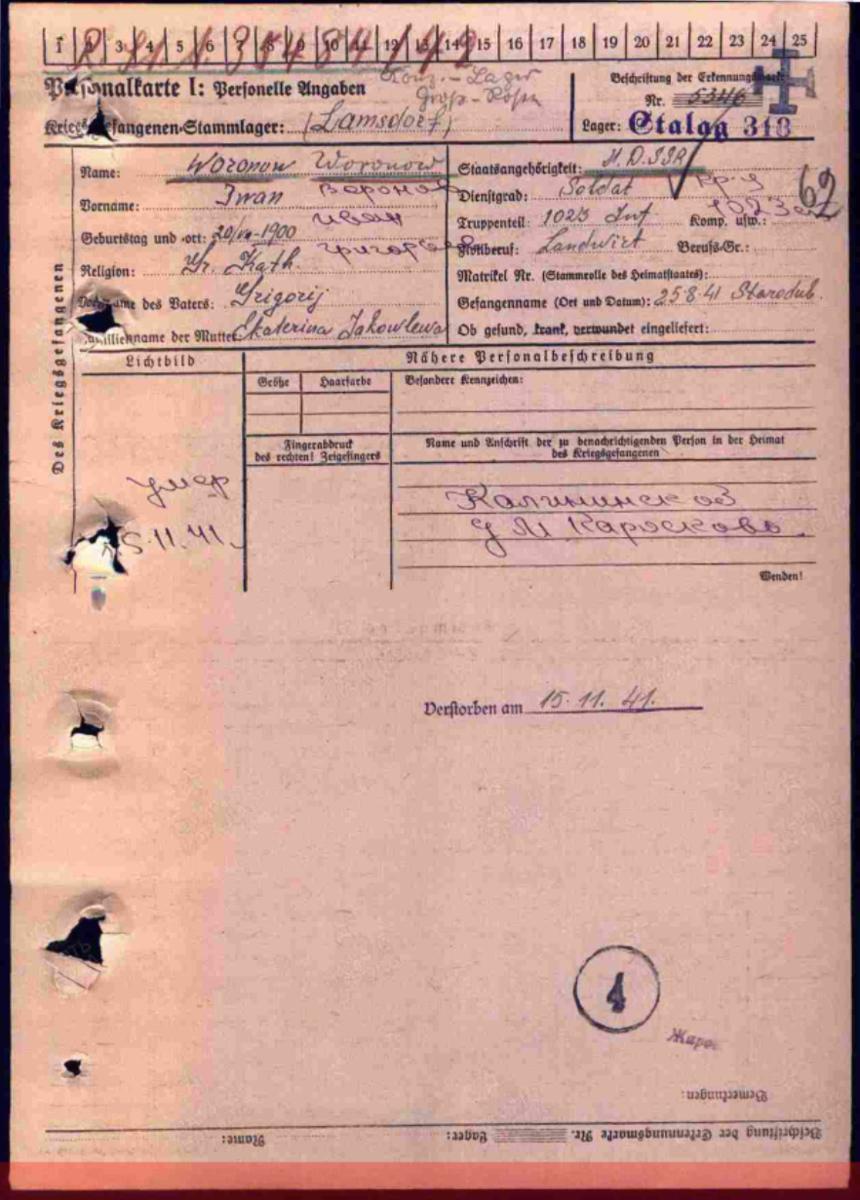 1 2 3 4 5 6 7 8 9 10 11 12 13 14 15 16 17 18 19 20 21 22 23 24 25
Konz.-Lager
Groß-Rosen
Personalkarte I: Personelle Angaben
Kriegsgefangenen-Stammlager: (Lamsdorf)
Beschriftung der Erkennungsmarke
Nr. 5346
Lager: Stalag 318
Des Kriegsgefangenen
Name: Woronow Woronow
Воронов
Vorname: Iwan
Иван
Geburtstag und -ort: 20/VII-1900
Григорьев
Religion: Gr. Kath.
Vorname des Vaters: Grigorij
Familienname der Mutter: Ekaterina Jakowlewa
Staatsangehörigkeit: U.D.S.S.R
Dienstgrad: Soldat
62
Truppenteil: 1023 Inf Komp. usw.: 1023
Zivilberuf: Landwirt Berufs-Gr.:
Matrikel Nr. (Stammrolle des Heimatstaates):
Gefangenname (Ort und Datum): 25.8.41 Starodub.
Ob gesund, krank, verwundet eingeliefert:
Lichtbild
Nähere Personalbeschreibung
Größe Haarfarbe Besondere Kennzeichen:
Fingerabdruck
des rechten! Zeigefingers
Name und Anschrift der zu benachrichtigenden Person in der Heimat
des Kriegsgefangenen
умер
5.11.41.
Калининской
Wenden!
Verstorben am 15.11.41.
4
Bemerkungen:
Beschriftung der Erkennungsmarke Nr. Lager: Name: